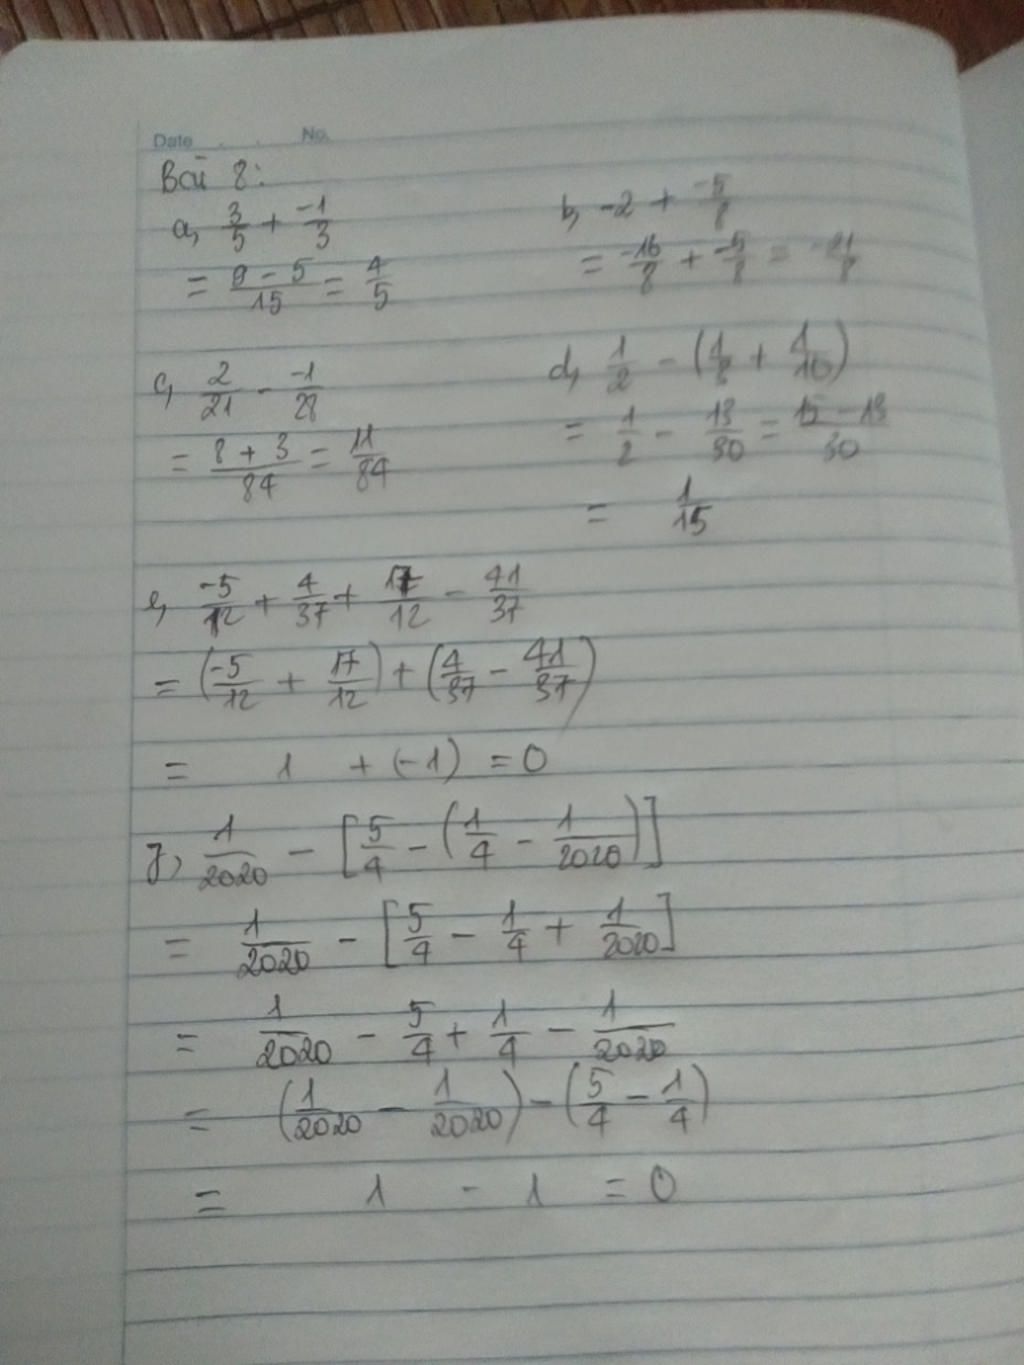 Date No.
Bài 8:
a, 3/5 + -1/3
= 9 - 5/15 = 4/5
b, -2 + -5/8
= -16/8 + -5/8 = -21/8
c, 2/21 - -1/28
= 8 + 3/84 = 11/84
d, 1/2 - (1/3 + 1/10)
= 1/2 - 13/30 = 15 - 13/30
= 1/15
e, -5/12 + 4/37 + 17/12 - 41/37
= (-5/12 + 17/12) + (4/37 - 41/37)
= 1 + (-1) = 0
f, 1/2020 - [5/4 - (1/4 - 1/2020)]
= 1/2020 - [5/4 - 1/4 + 1/2020]
= 1/2020 - 5/4 + 1/4 - 1/2020
= (1/2020 - 1/2020) - (5/4 - 1/4)
= 1 - 1 = 0